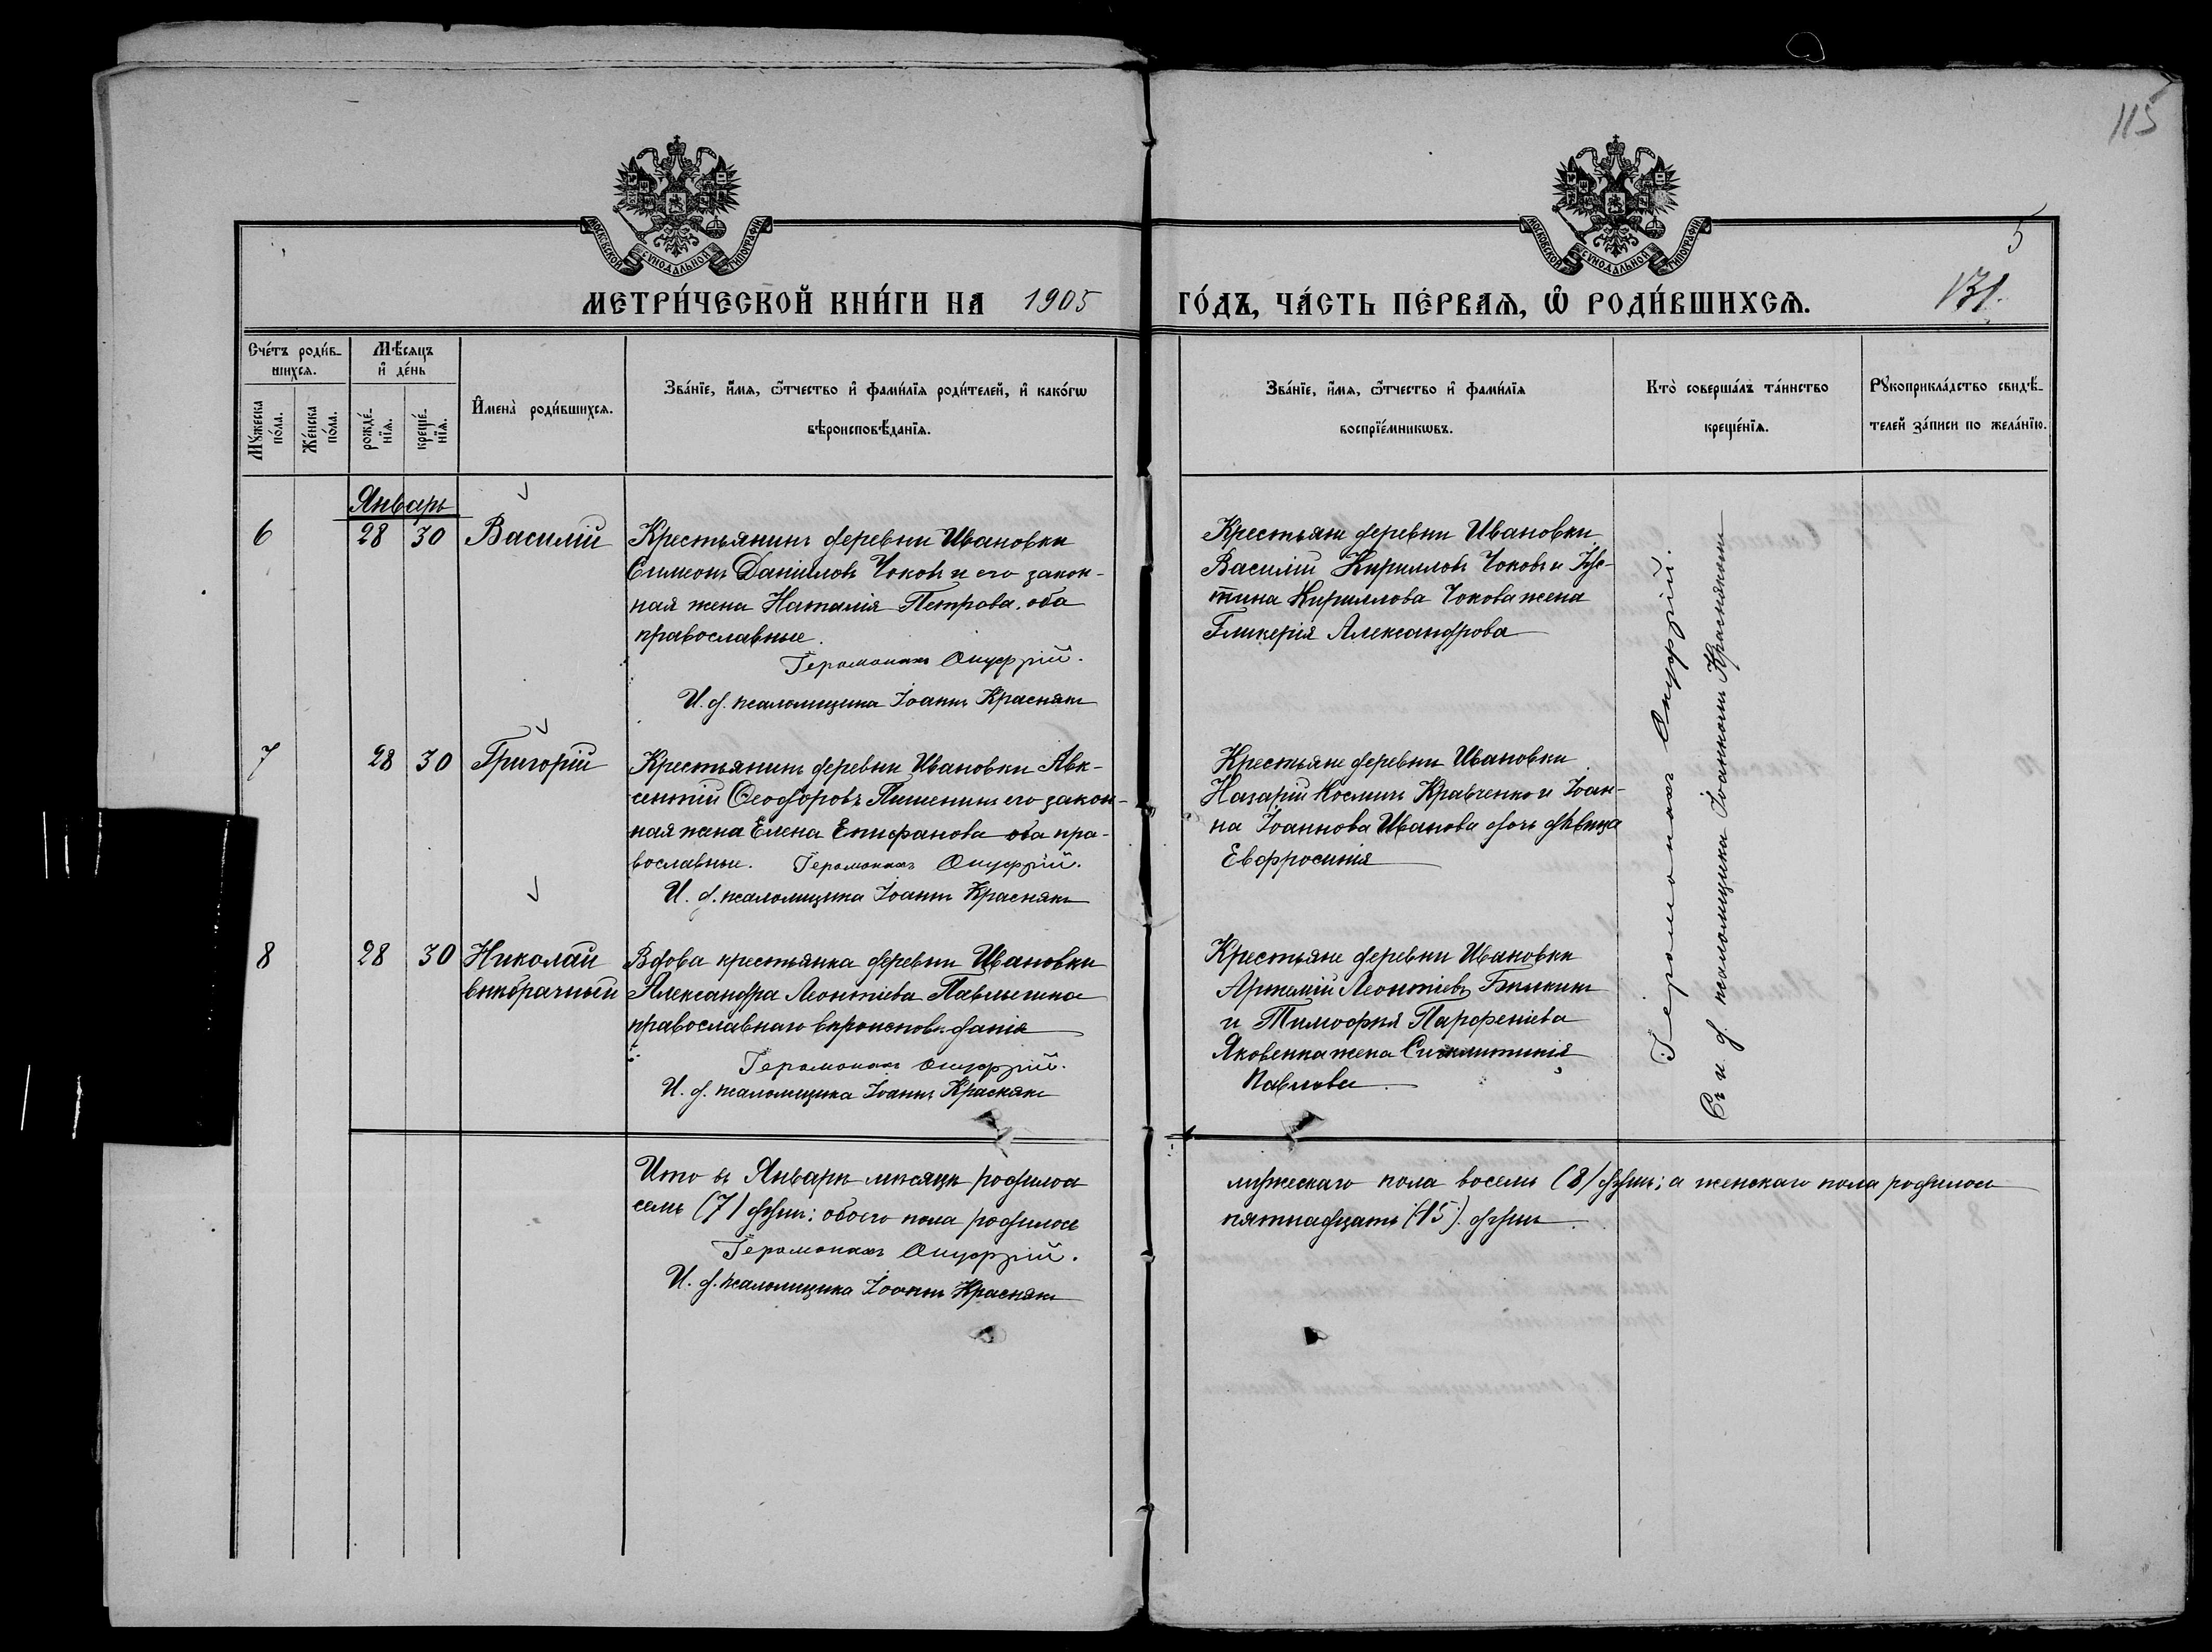 115
МОСКОВСКОЙ СѴНОДАЛЬНОЙ ТИПОГРАФІИ.
МОСКОВСКОЙ СѴНОДАЛЬНОЙ ТИПОГРАФІИ.
5
МЕТРИ́ЧЕСКОЙ КНИ́ГИ НА 1905 ГО́ДЪ, ЧА́СТЬ ПЕ́РВАѦ, Ѡ҆ РОДИ́ВШИХСѦ. 131.
Сче́тъ роди́в-
шихсѧ.
Мꙋ́жеска по́ла.
Же́нска по́ла.
Мѣ́сяцъ
и҆ де́нь
рожде́-
нїѧ.
креще́-
нїѧ.
И҆мена̀ роди́вшихсѧ.
Зва́нїе, и҆́мѧ, ѻ҆́тчество и҆ фами́лїѧ роди́телей, и҆ како́гѡ
вѣроисповѣ́данїѧ.
Зва́нїе, и҆́мѧ, ѻ҆́тчество и҆ фами́лїѧ
воспрїе́мникѡвъ.
Кто̀ соверша́лъ та́инство
креще́нїѧ.
Рꙋкоприкла́дство свидѣ́-
телей за́писи по жела́нїю.
Январь
6 28 30 Василій
Крестьянинъ деревни Ивановки
Симеонъ Даніиловъ Чоковъ и его закон-
ная жена Наталія Петрова, оба
православные.
Іеромонахъ Онуфрій.
И. д. псаломщика Іоаннъ Краснякъ
Крестьяне деревни Ивановки
Василій Кирилловъ Чоковъ и Іус-
тина Кириллова Чокова жена
Гликерія Александрова
7 28 30 Григорій
Крестьянинъ деревни Ивановки Авк-
сентій Ѳеодоровъ его закон-
ная жена Елена Епифанова оба пра-
вославные. Іеромонахъ Онуфрій.
И. д. псаломщика Іоаннъ Краснякъ
Крестьяне деревни Ивановки
Назарій Косминъ Кравченко и Іоан-
на Іоаннова Иванова дочь дѣвица
Евфросинія
8 28 30 Николай
внѣбрачный
Вдова крестьянка деревни Ивановки
Александра Леонтіева
православнаго вѣроисповѣданія
Іеромонахъ Онуфрій.
И. д. псаломщика Іоаннъ Краснякъ
Крестьяне деревни Ивановки
Артемій Леонтіевъ Билкинъ
и Тимоѳея Парфеніева
Яковенка жена Сигклитикія
Павлова
Іеромонахъ Онуфрій.
Съ и. д. псаломщика Іоанномъ Краснякомъ
Итого въ Январѣ мѣсяцѣ родилось
мужескаго пола восемь (8) душъ; а женскаго пола родилось
семь (7) душъ; обоего пола родилось
пятнадцать (15) душъ.
Іеромонахъ Онуфрій.
И. д. псаломщика Іоаннъ Краснякъ